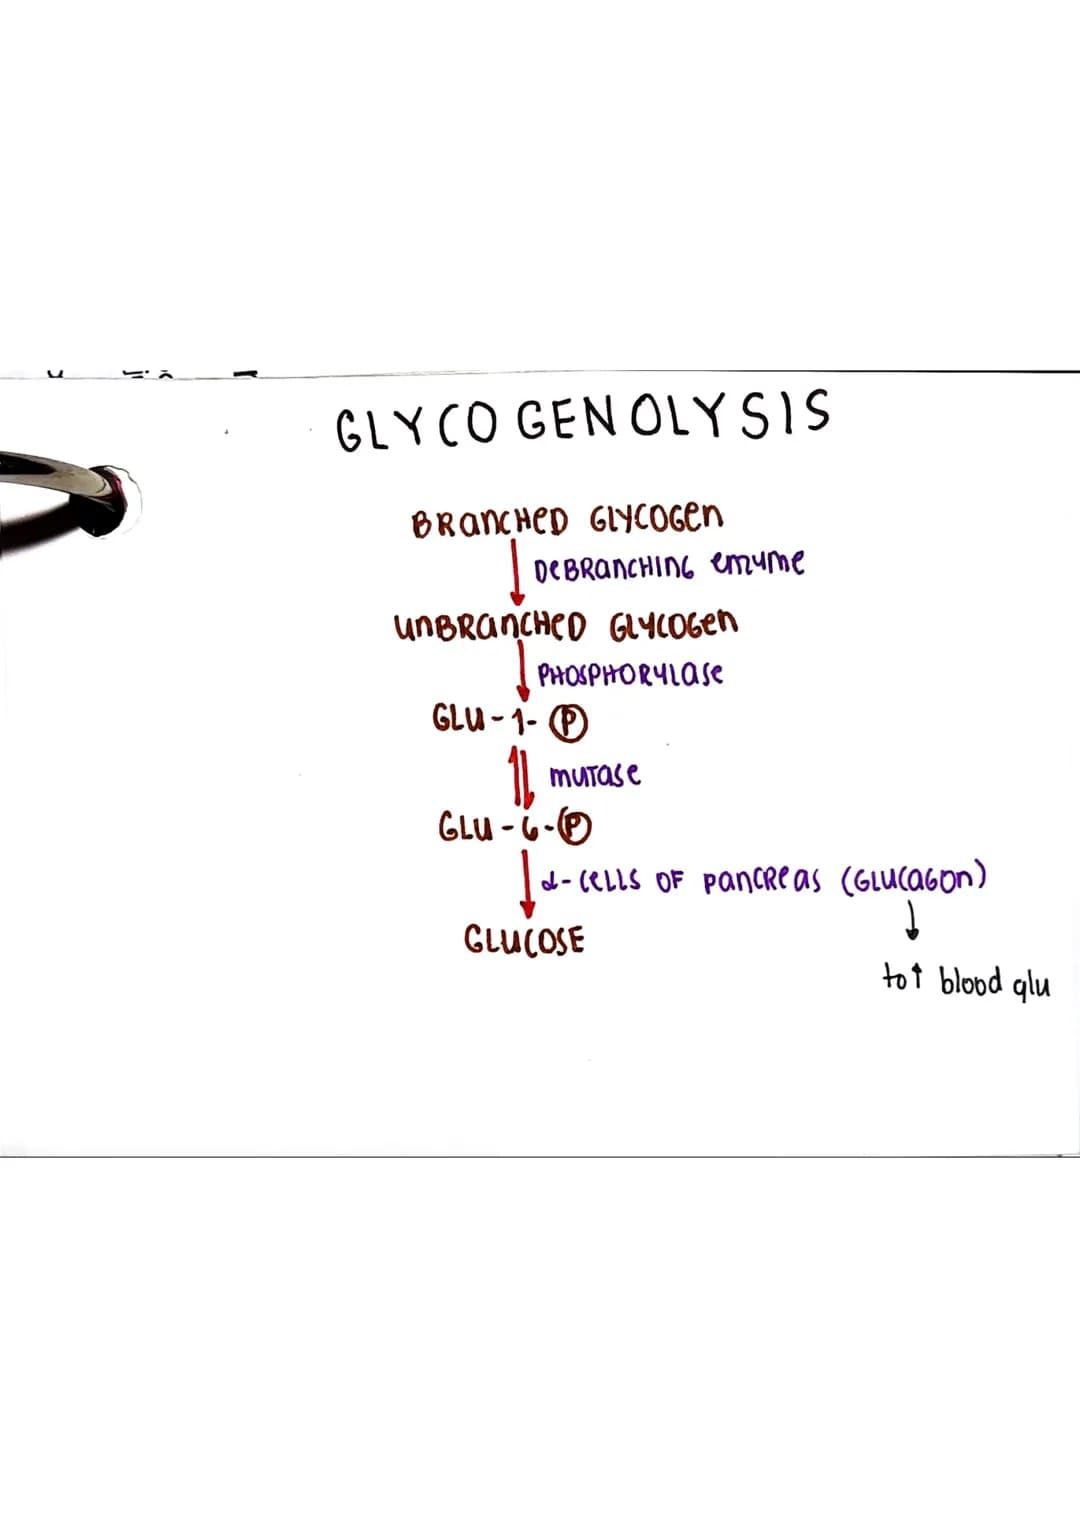 GLYCOGENOLYSIS
BRANCHED GLYCOGEN
DEBRANCHING enzyme
UNBRANCHED GLYCOGEN
PHOSPHORYLASE
GLU-1-Ⓟ
MUTASE
GLU-6-Ⓟ
α-CELLS OF PANCREAS (GLUCAGON)
GLUCOSE
to↑ blood glu